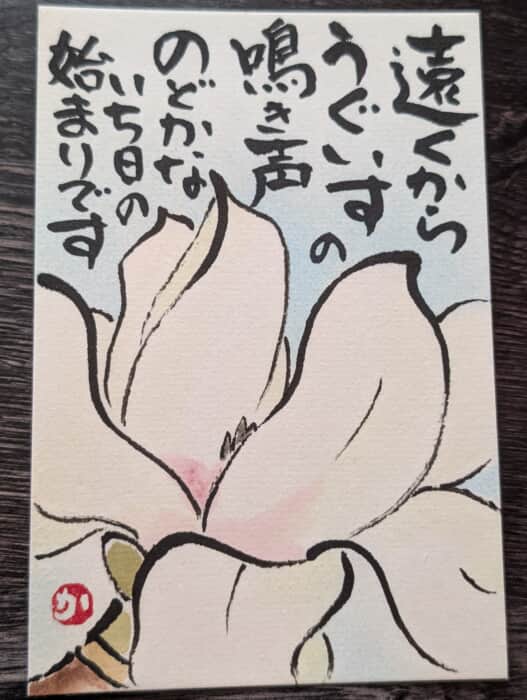 遠くから
うぐいすの
鳴き声
のどかな
いち日の
始まりです
か